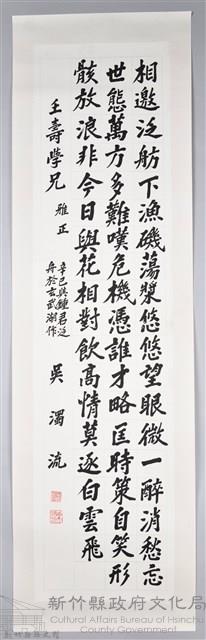 相邀泛舫下漁磯蕩槳悠悠望眼微一醉消愁忘
世態萬方多難嘆危機憑誰才略匡時策自笑形
骸放浪非今日與花相對飲高情莫逐白雲飛
王壽學兄 雅正
辛巳與鍾君泛
舟於玄武湖作
吳濁流
新竹縣政府文化局
Cultural Affairs Bureau of Hsinchu
County Government